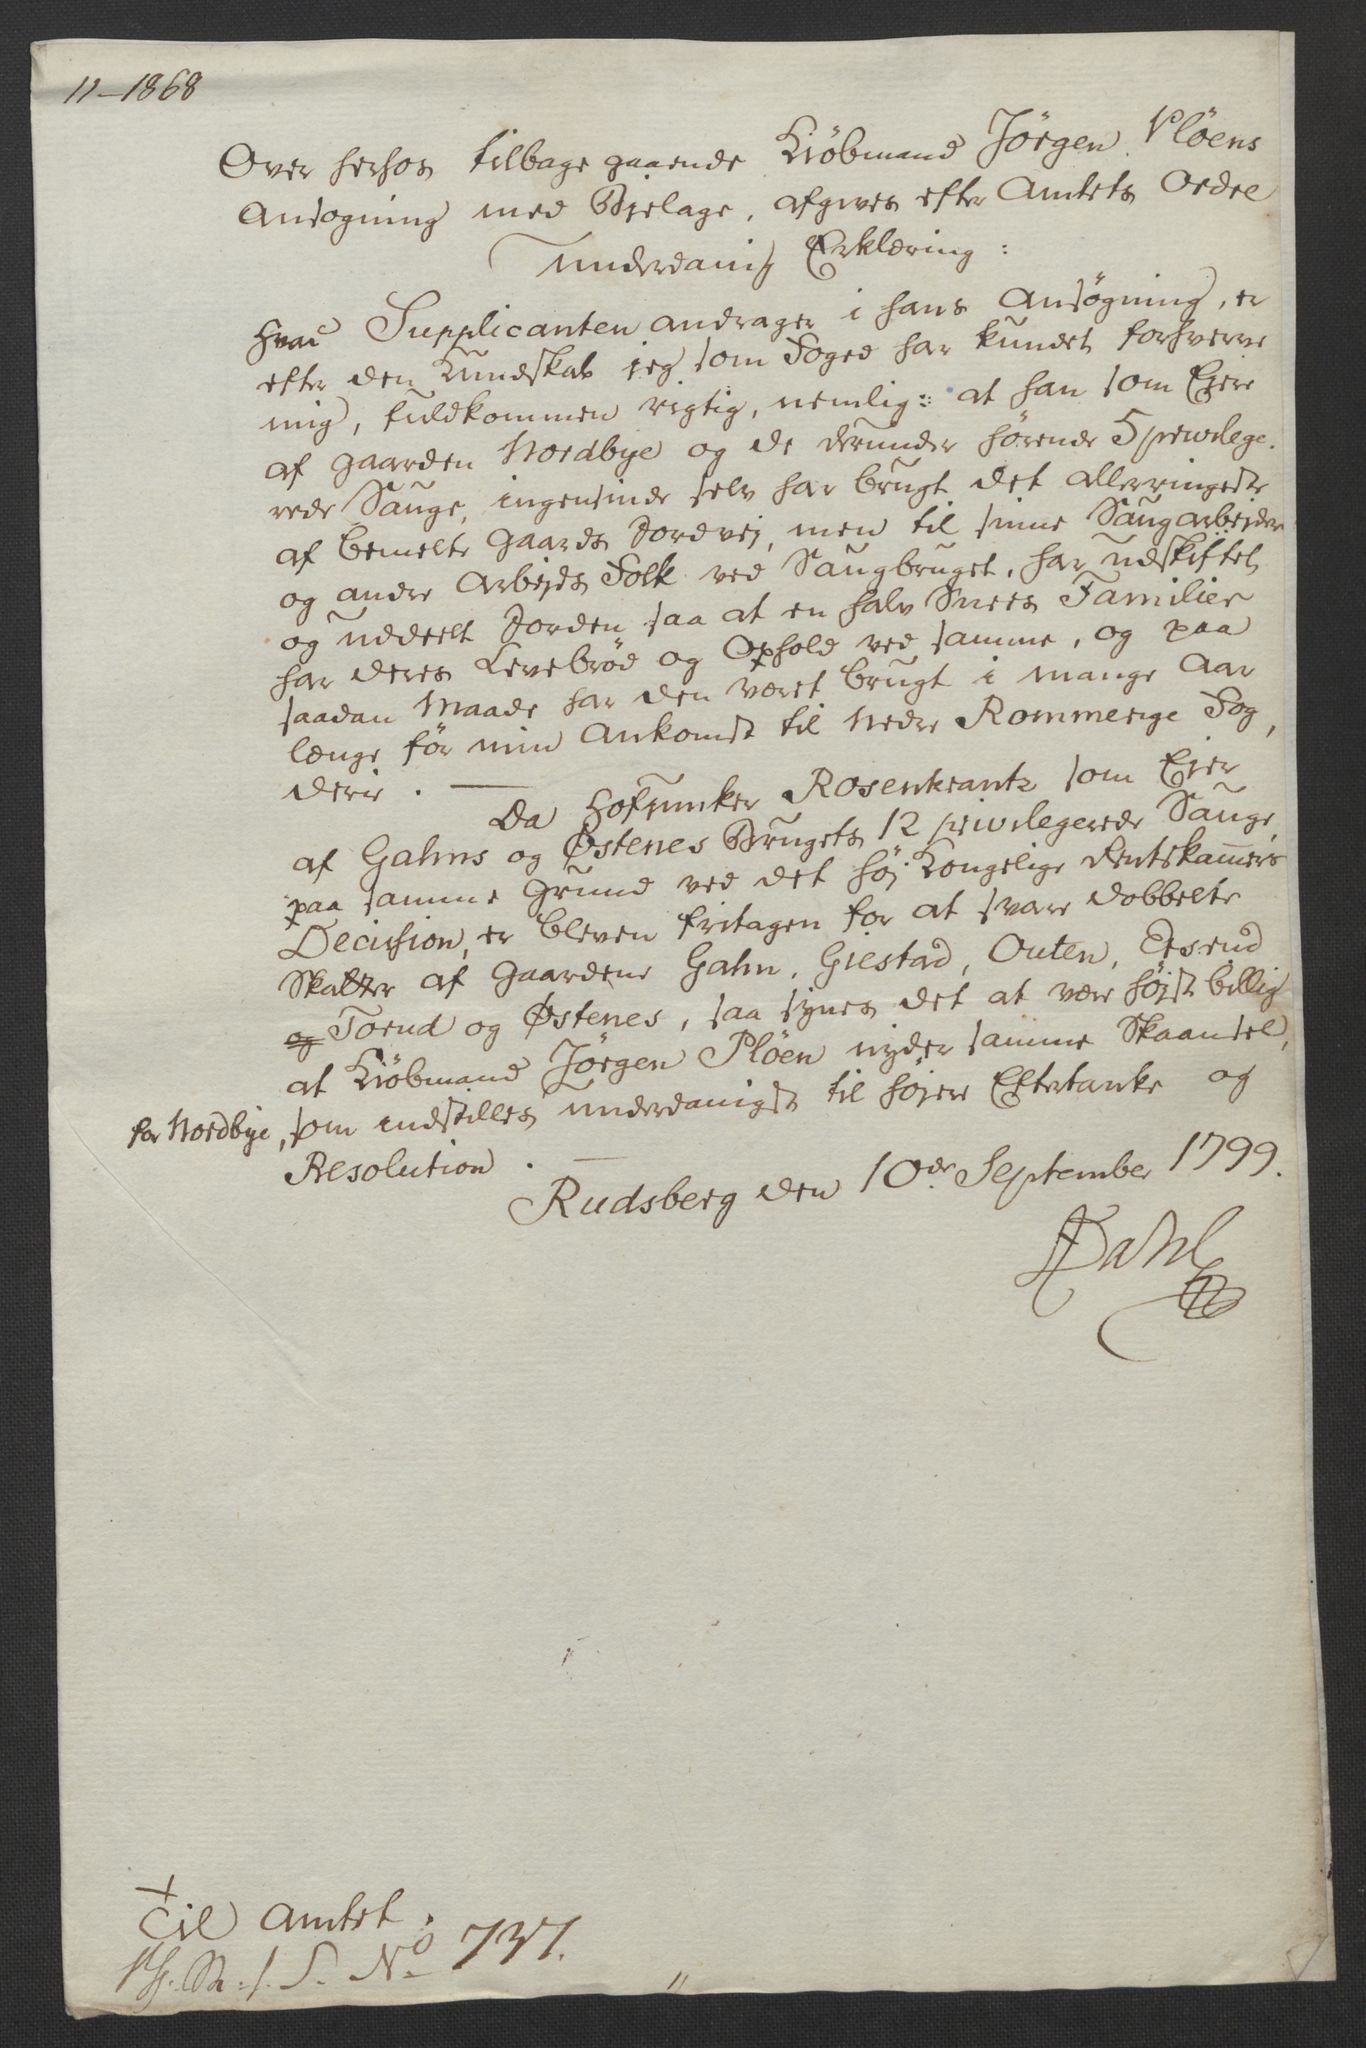 11–1868
Over herhos tilbage gaaende Kiöbmand Jörgen Plöens
Ansogning med Bielage, afgives efter Amtets Ordre
underdanig Erklæring:
Hvad Supplicanten andrager i hans Ansögning, er
efter den Kundskab jeg som Foged har kundet forhverve
mig, fuldkommen rigtig, nemlig: at han som Eiere
af Gaarden Nordbye og de derunder hörende 5 privilege-
rede Sauge, ingensinde selv har brugt det allerringeste
af bemelte Gaards Jordvej, men til sinne Saugarbejdere
og andre Arbejds Folk ved Saugbruget, har udskiftet
og uddeelt Jorden saa at en halv Snees Familier
har deres Levebröd og Ophold ved samme, og paa
saadan Maade har den været brugt i mange Aar
længe för min Ankomst til Nedre Rommerige Fog-
derie. —
Da Hofjunker Rosenkrantz som Ejer
af Gahns og Østenes Brugets 12 privilegerede Sauge,
paa samme Grund ved det høj Kongelige Rentekammers
Decission, er bleven fritagen for at svare dobbelte
Skatter af Gaardene Gahn, Giestad, Outen, Asrud
og Torud og Østenes, saa synes det at være højst billig
at Kiöbmand Jörgen Plöen nyder samme Skaansel,
for Nordbye, som indstilles underdanigst til højere Eftertanke og
Resolution. —
Rudsberg den 10de September 1799.
Dahl
Til Amtet.
No 737.